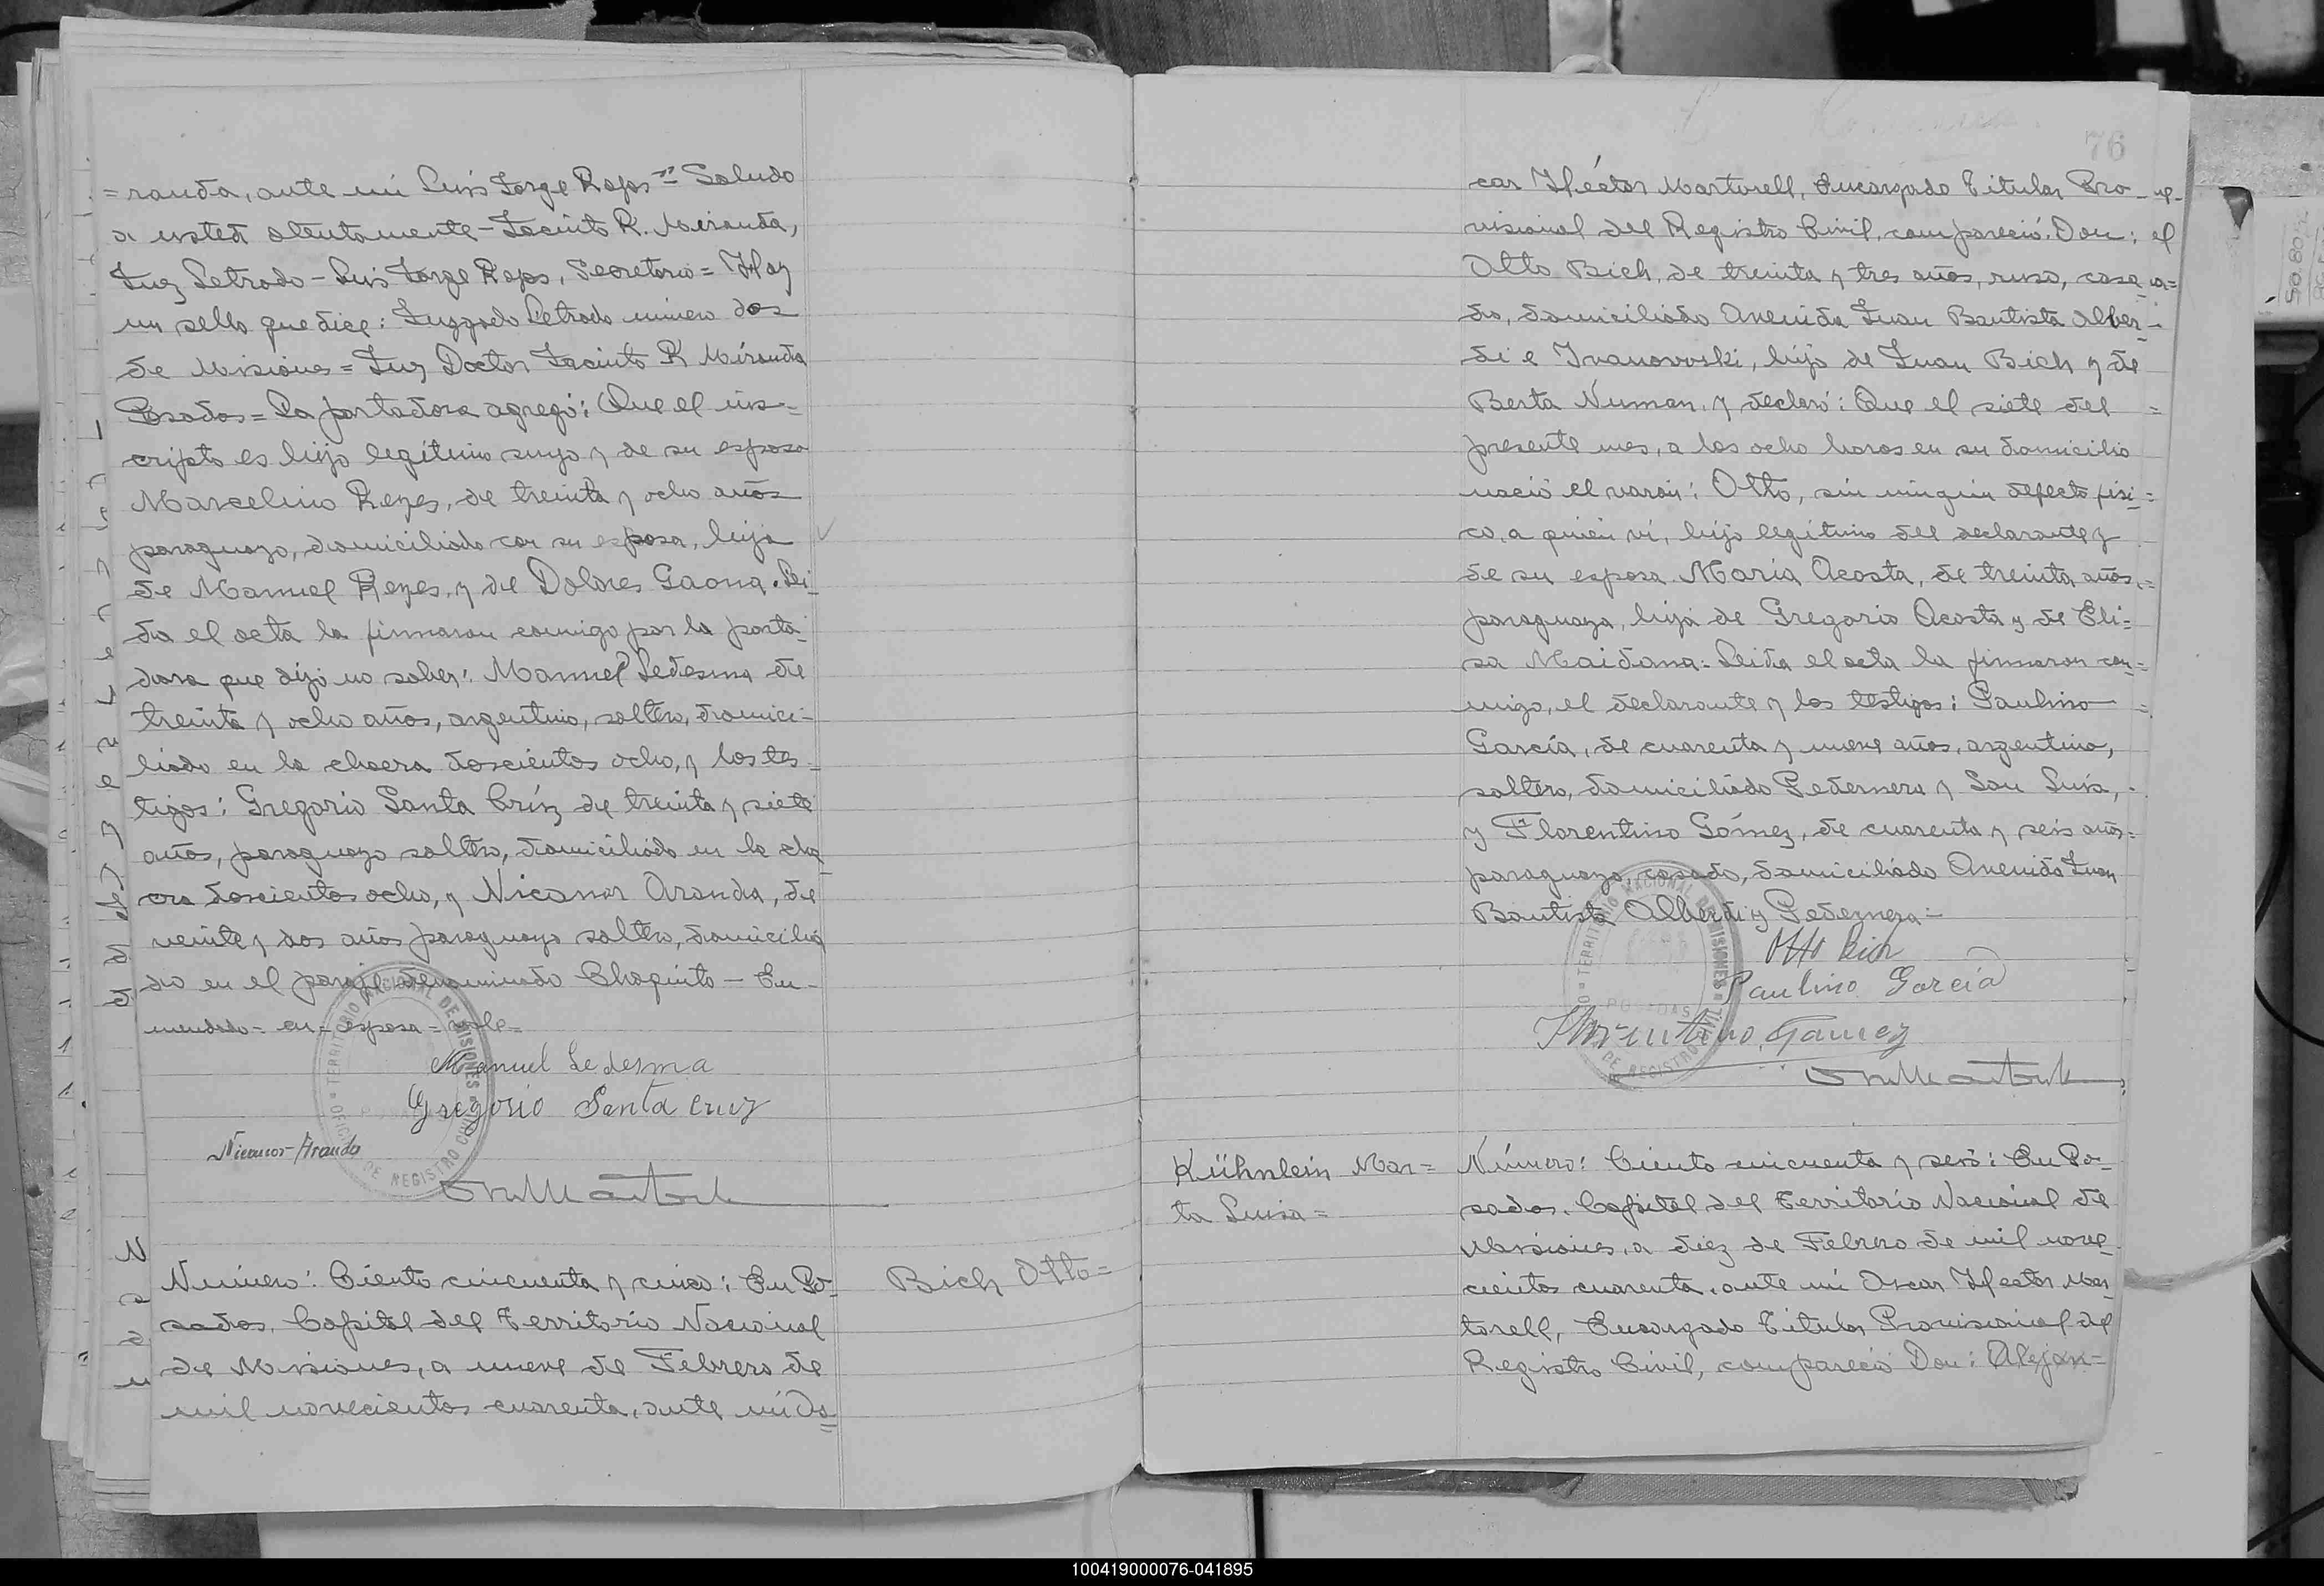 =randa, ante mi Luis Jorge Rojas"= Saludo
a usted atentamente - Jacinto R. Miranda,
Juez Letrado - Luis Jorge Rojas, Secretario = Hay
un sello que dice: Juzgado Letrado número dos
de Misiones = Juez Doctor Jacinto R Miranda
Posadas = La portadora agregó: Que el ins-
cripto es hijo legítimo suyo y de su esposo
Marcelino Reyes, de treinta y ocho años
paraguayo, domiciliado con su esposa, hijo
de Manuel Reyes, y de Dolores Gaona. Leí-
da el acta la firmaron conmigo por la porta-
dora que dijo no saber: Manuel Ledesma de
treinta y ocho años, argentino, soltero, domici-
liado en la chacra doscientos ocho, y los tes-
tigos: Gregorio Santa Crúz de treinta y siete
años, paraguayo soltero, domiciliado en la cha
cra doscientos ocho, y Nicanor Aranda, de
veinte y dos años paraguayo soltero, domicilia
do en el paraje denominado Chaquito - En-
mendado - en - esposa - vale =
Manuel Ledesma
Gregorio Santa Cruz
Nicanor Aranda
TERRITORIO NACIONAL DE MISIONES
OFICINA DE REGISTRO CIVIL
Bich Otto =
Número: Ciento cincuenta y cinco: En Po-
sadas, Capital del Territorio Nacional
de Misiones, a nueve de Febrero de
mil novecientos cuarenta, ante mi Os=
76
car Héctor Martorell, Encargado Titular Pro-
visional del Registro Civil, compareció Don:
Otto Bich, de treinta y tres años, ruso, casa-
do, domiciliado Avenida Juan Bautista Alber-
di e Ivanovski, hijo de Juan Bich y de
Berta Numan, y declaró: Que el siete del
presente mes, a las ocho horas en su domicilio
nació el varón: Otto, sin ningún defecto físi-
co, a quién ví, hijo legítimo del declarante y
de su esposa María Acosta, de treinta años,
paraguaya, hija de Gregorio Acosta y de Eli-
sa Maidana: Leída el acta la firmaron con-
migo, el declarante y los testigos: Paulino
García, de cuarenta y nueve años, argentino,
soltero, domiciliado Pedernera y San Luis,
y Florentino Gómez, de cuarenta y seis años
paraguayo, casado, domiciliado Avenida Juan
Bautista Alberdi y Pedernera =
Otto Bich
Paulino García
Florentino Gamez
TERRITORIO NACIONAL DE MISIONES
POSADAS
DE REGISTRO CIVIL
Kühnlein Mar=
ta Luisa =
Número: Ciento cincuenta y seis: En Po-
sadas, Capital del Territorio Nacional de
Misiones, a diez de Febrero de mil nove-
cientos cuarenta, ante mi Oscar Hector Mar
torell, Encargado Titular Provisional del
Registro Civil, compareció Don: Alejan=
100419000076-041895